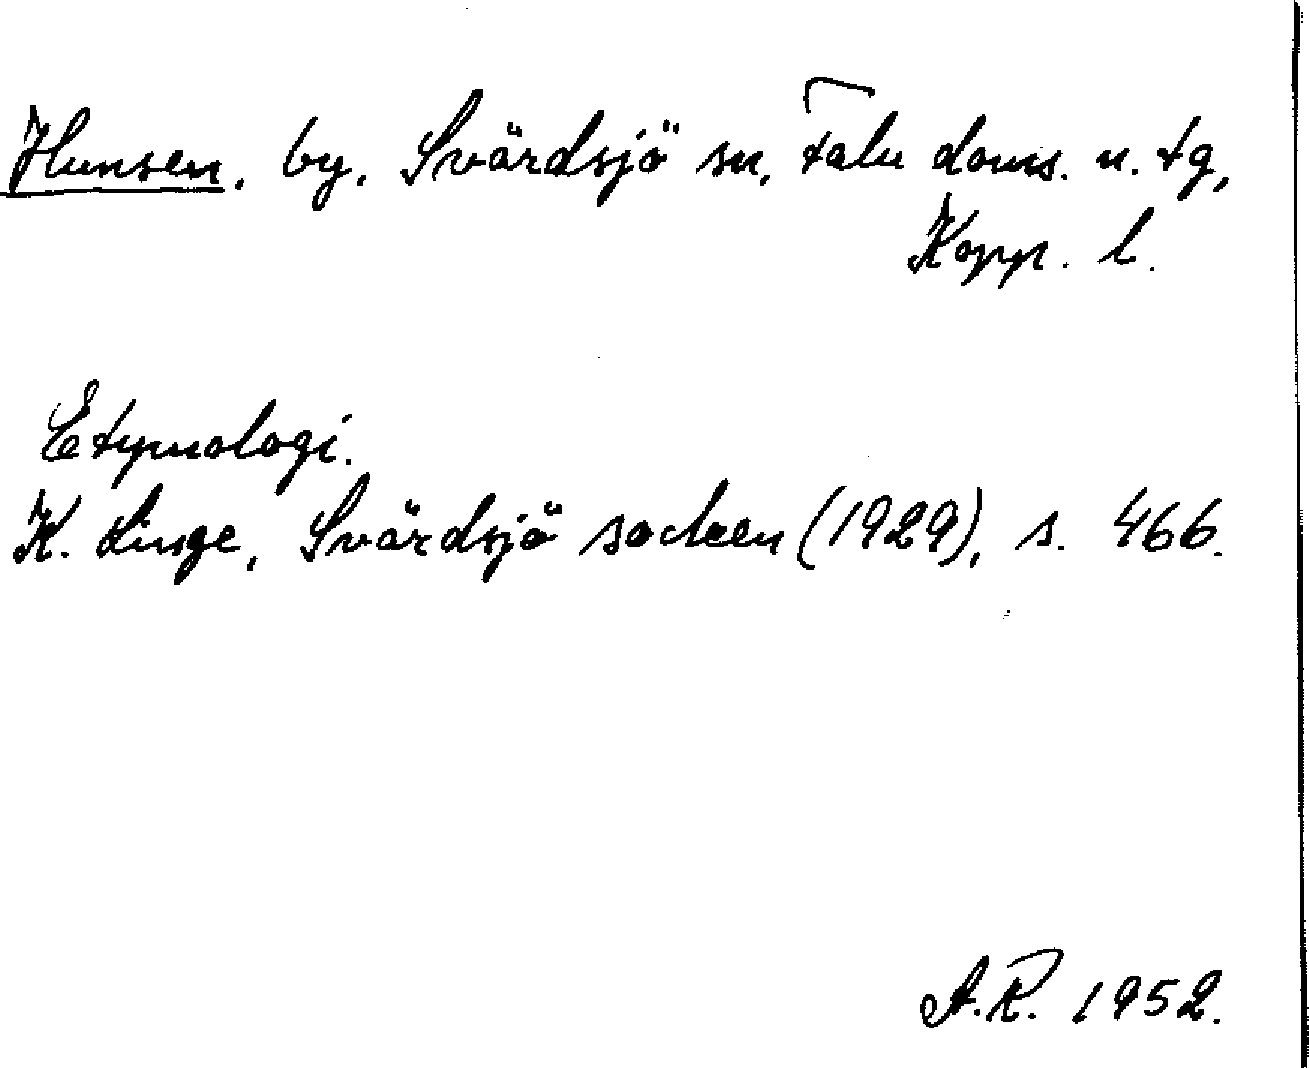 Hunsen. by. Svärdsjö sn, Falu doms. n. tg,
Kopp. l.
Etymologi.
K. Linge, Svärdsjö socken (1929), s. 466.
A.R. 1952.